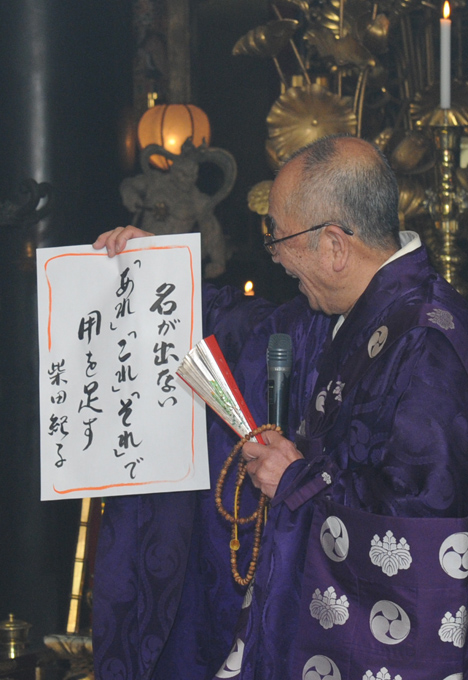 名が出ない
「あれ」「これ」「それ」で
用を足す
柴田紀子